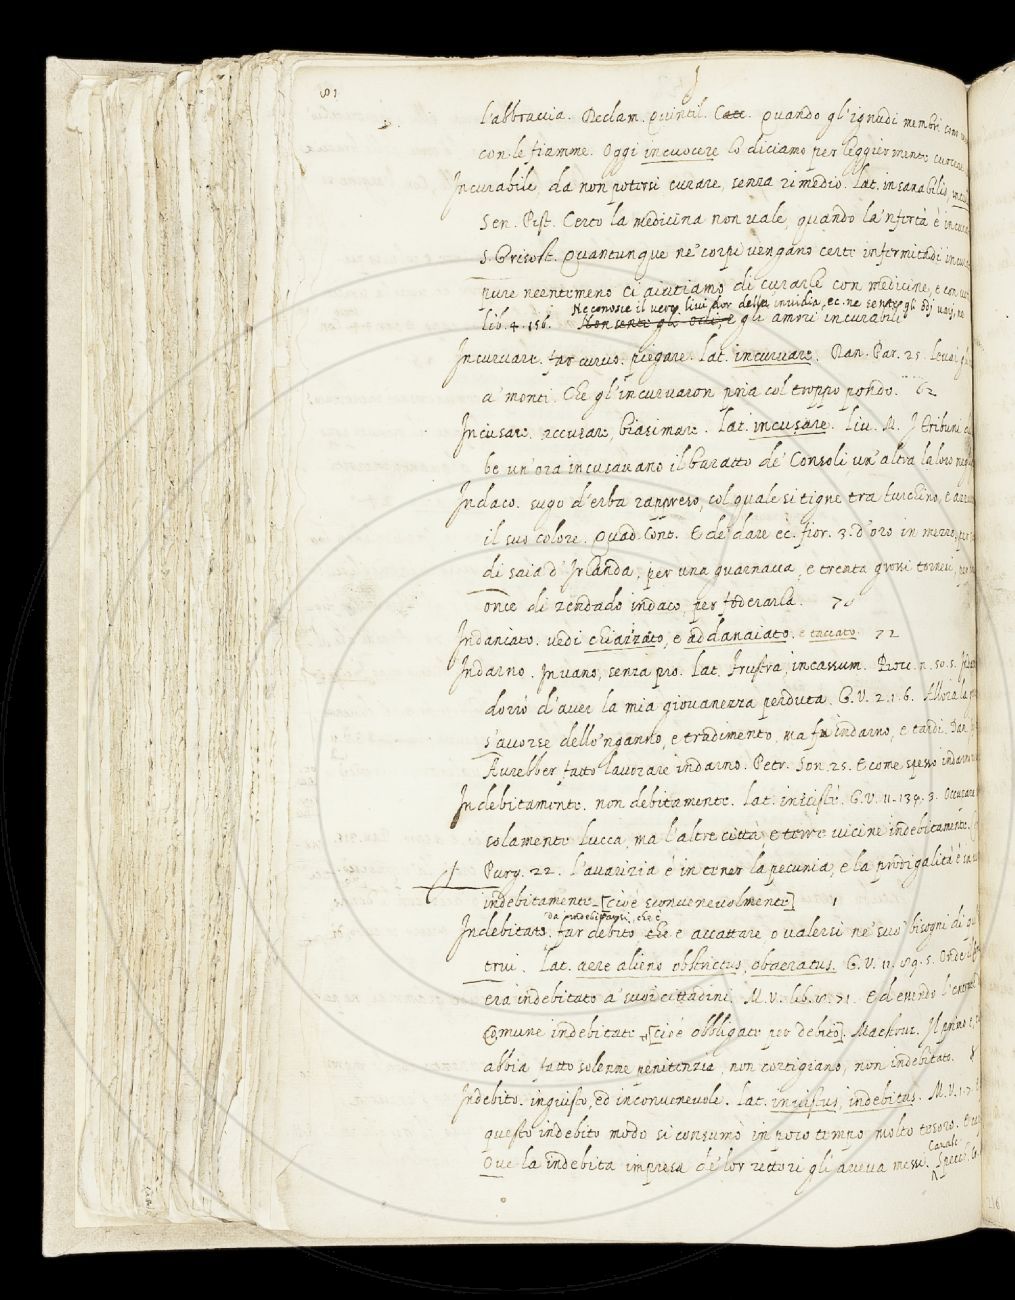 I
l'abbraccia. Declam. Quintil. Quando gl'ignudi membri
con le fiamme. Oggi incuocere lo diciamo per leggiermente cuocere
Incurabile, da non potersi curare, senza rimedio. Lat. insanabilis,
Sen. Pist. Certo la medicina non vale, quando la 'nfertà è
S. Grisost. Quantunque ne' corpi vengano certe infermitadi
pure neentemeno ci aiutiamo di curarle con medicine, e con
Ne conosce il vero livi dor della invidia, ec. ne sente gli
lib. 4. 156. Non sente gli odii, e gli amori incurabili
Incurvare. far curvo. piegare. Lat. incurvare. Dan. Par. 25. Levai gl
a' monti. Che gl'incurvaron pria col troppo pondo. 62
Incusare. accusare, biasimare. Lat. incusare. Liv. M. I tribuni
be un'ora incusavano il baratto de' Consoli un'altra la loro
Indaco. sugo d'erba rappreso, col quale si tigne tra turchino, e
il suo colore. Quad. Cont. E de' dare ec. fior. 3. d'oro in mezzo,
di saia d'Irlanda, per una guarnacca, e trenta grossi tornesi,
once di zendado indaco, per foderarla. 70
Indanaiato. vedi chiazzato, e addanaiato. e taccato. 72
Indarno. Invano, senza pro. Lat. frustra, incassum. Bocc. n. 50. 5.
dorrò d'aver la mia giovanezza perduta. G. V. 2. 1. 6. Allora la
s'avorse dello 'nganno, e tradimento, ma fu indarno, e tardi. Dan.
Avrebber fatto lavorare indarno. Petr. Son. 25. E come spesso indarno
Indebitamente. non debitamente. Lat. iniustè. G. V. 11. 139. 3.
solamente Lucca, ma l'altre città, e terre vicine indebitamente.
Purg. 22. l'avarizia è in tener la pecunia, e la prodigalità è
indebitamente [cioè sconvenevolmente]
da indebitarsi, che è
Indebitato. far debito che è accattare, o valersi ne' suo' bisogni di
trui. Lat. aere alieno obstrictus, obaeratus. G. V. 11. 89. 5. Onde
era indebitato a' suoi cittadini. M. V. lib. 8. 71. Ed essendo l'entrate
Comune indebitate [cioè obbligate per debito]. Maestruz. Il primo è,
abbia fatto solenne penitenzia, non cortigiano, non indebitato.
Indebito. ingiusto, ed inconvenevole. Lat. iniustus, indebitus. M. V. 1. 7.
questo indebito modo si consumò in poco tempo molto tesoro.
Cavalc.
Ove la indebita impresa de' lor rettori gli aveva messi. Specch.
216